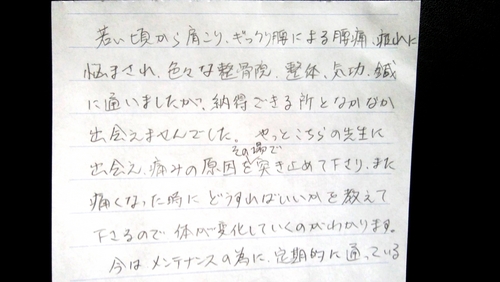 若い頃から肩こり、ぎっくり腰による腰痛、痺れに
悩まされ、色々な整骨院、整体、気功、鍼
に通いましたが、納得できる所となかなか
出会えませんでした。やっとこちらの先生に
出会え、痛みの原因をその場で突き止めて下さり、また
痛くなった時にどうすればいいかを教えて
下さるので体が変化していくのがわかります。
今はメンテナンスの為に、定期的に通っている